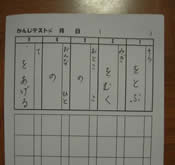 かんじテスト 月 日
そら をとぶ
みぎ をむく
おとこ の こ
おんな の ひと
て をあげる